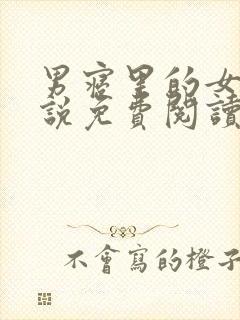 男寢里的女
說免費閱讀
不會寫的橙子